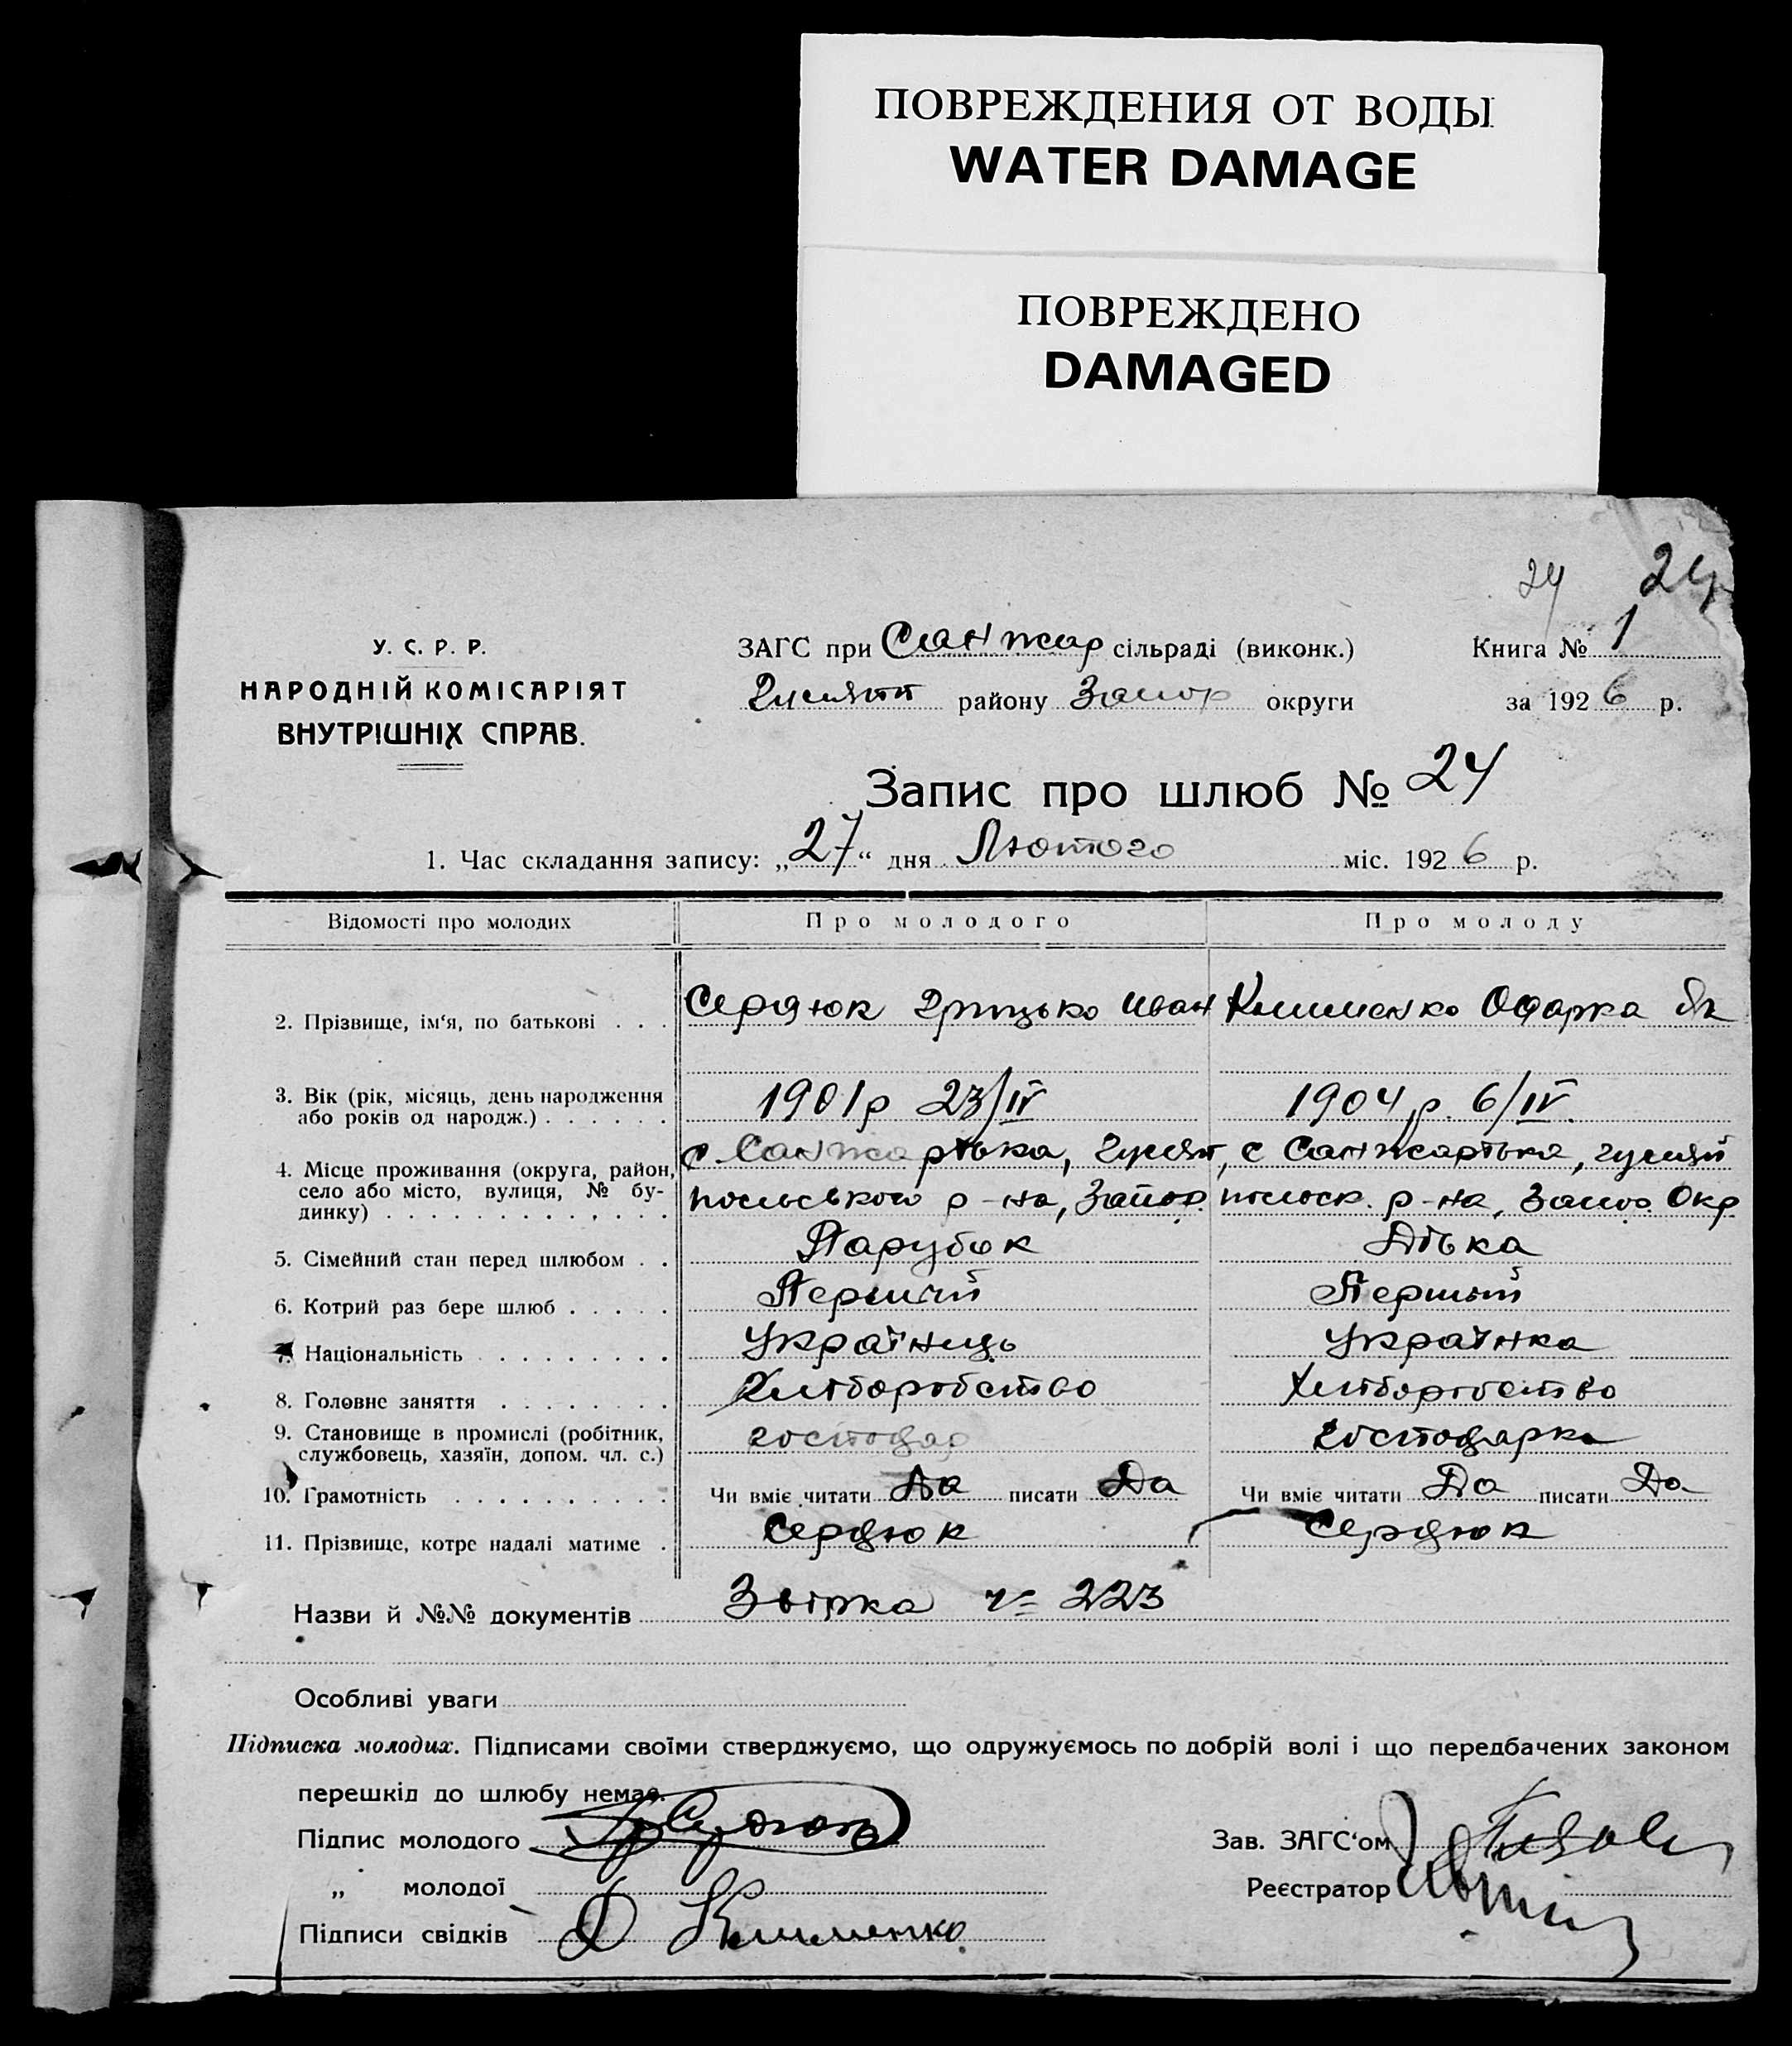 ПОВРЕЖДЕНИЯ ОТ ВОДЫ
WATER DAMAGE
ПОВРЕЖДЕНО
DAMAGED
24 24
У. С. Р. Р.
НАРОДНІЙ КОМІСАРІЯТ
ВНУТРІШНІХ СПРАВ.
ЗАГС при Санжар сільраді (виконк.) Книга № 1
Гуляй району Запор округи за 1926 р.
Запис про шлюб № 24
1. Час складання запису: „27“ дня Лютого міс. 1926 р.
Відомості про молодих Про молодого Про молоду
2. Прізвище, ім‘я, по батькові . . . Сердюк Грицько Иван Клименко Одарка Як
3. Вік (рік, місяць, день народження
або років од народж.) . . . . . . 1901р 23/IV 1904 р. 6/IV.
4. Місце проживання (округа, район, с. Санжарівка, Гуляй, с Санжарівка, гуляй
село або місто, вулиця, № бу- польського р-на, Запор. польск. р-на, Запор. Окр
динку) . . . . . . . . . . . .
5. Сімейний стан перед шлюбом . . Парубок Дівка
6. Котрий раз бере шлюб . . . . . Перший Першый
7. Національність . . . . . . . . . Українець Українка
8. Головне заняття . . . . . . . . Хліборобство Хліборобство
9. Становище в промислі (робітник, господар господарка
службовець, хазяїн, допом. чл. с.)
10. Грамотність . . . . . . . . . . Чи вміє читати Да писати Да Чи вміє читати Да писати Да
11. Прізвище, котре надалі матиме . Сердюк Сердюк
Назви й №№ документів Звірка № 223
Особливі уваги
Підписка молодих. Підписами своїми стверджуємо, що одружуємось по добрій волі і що передбачених законом
перешкід до шлюбу немає.
Підпис молодого Гр Сердюк Зав. ЗАГС‘ом
„ молодої Реєстратор
Підписи свідків О Клименко